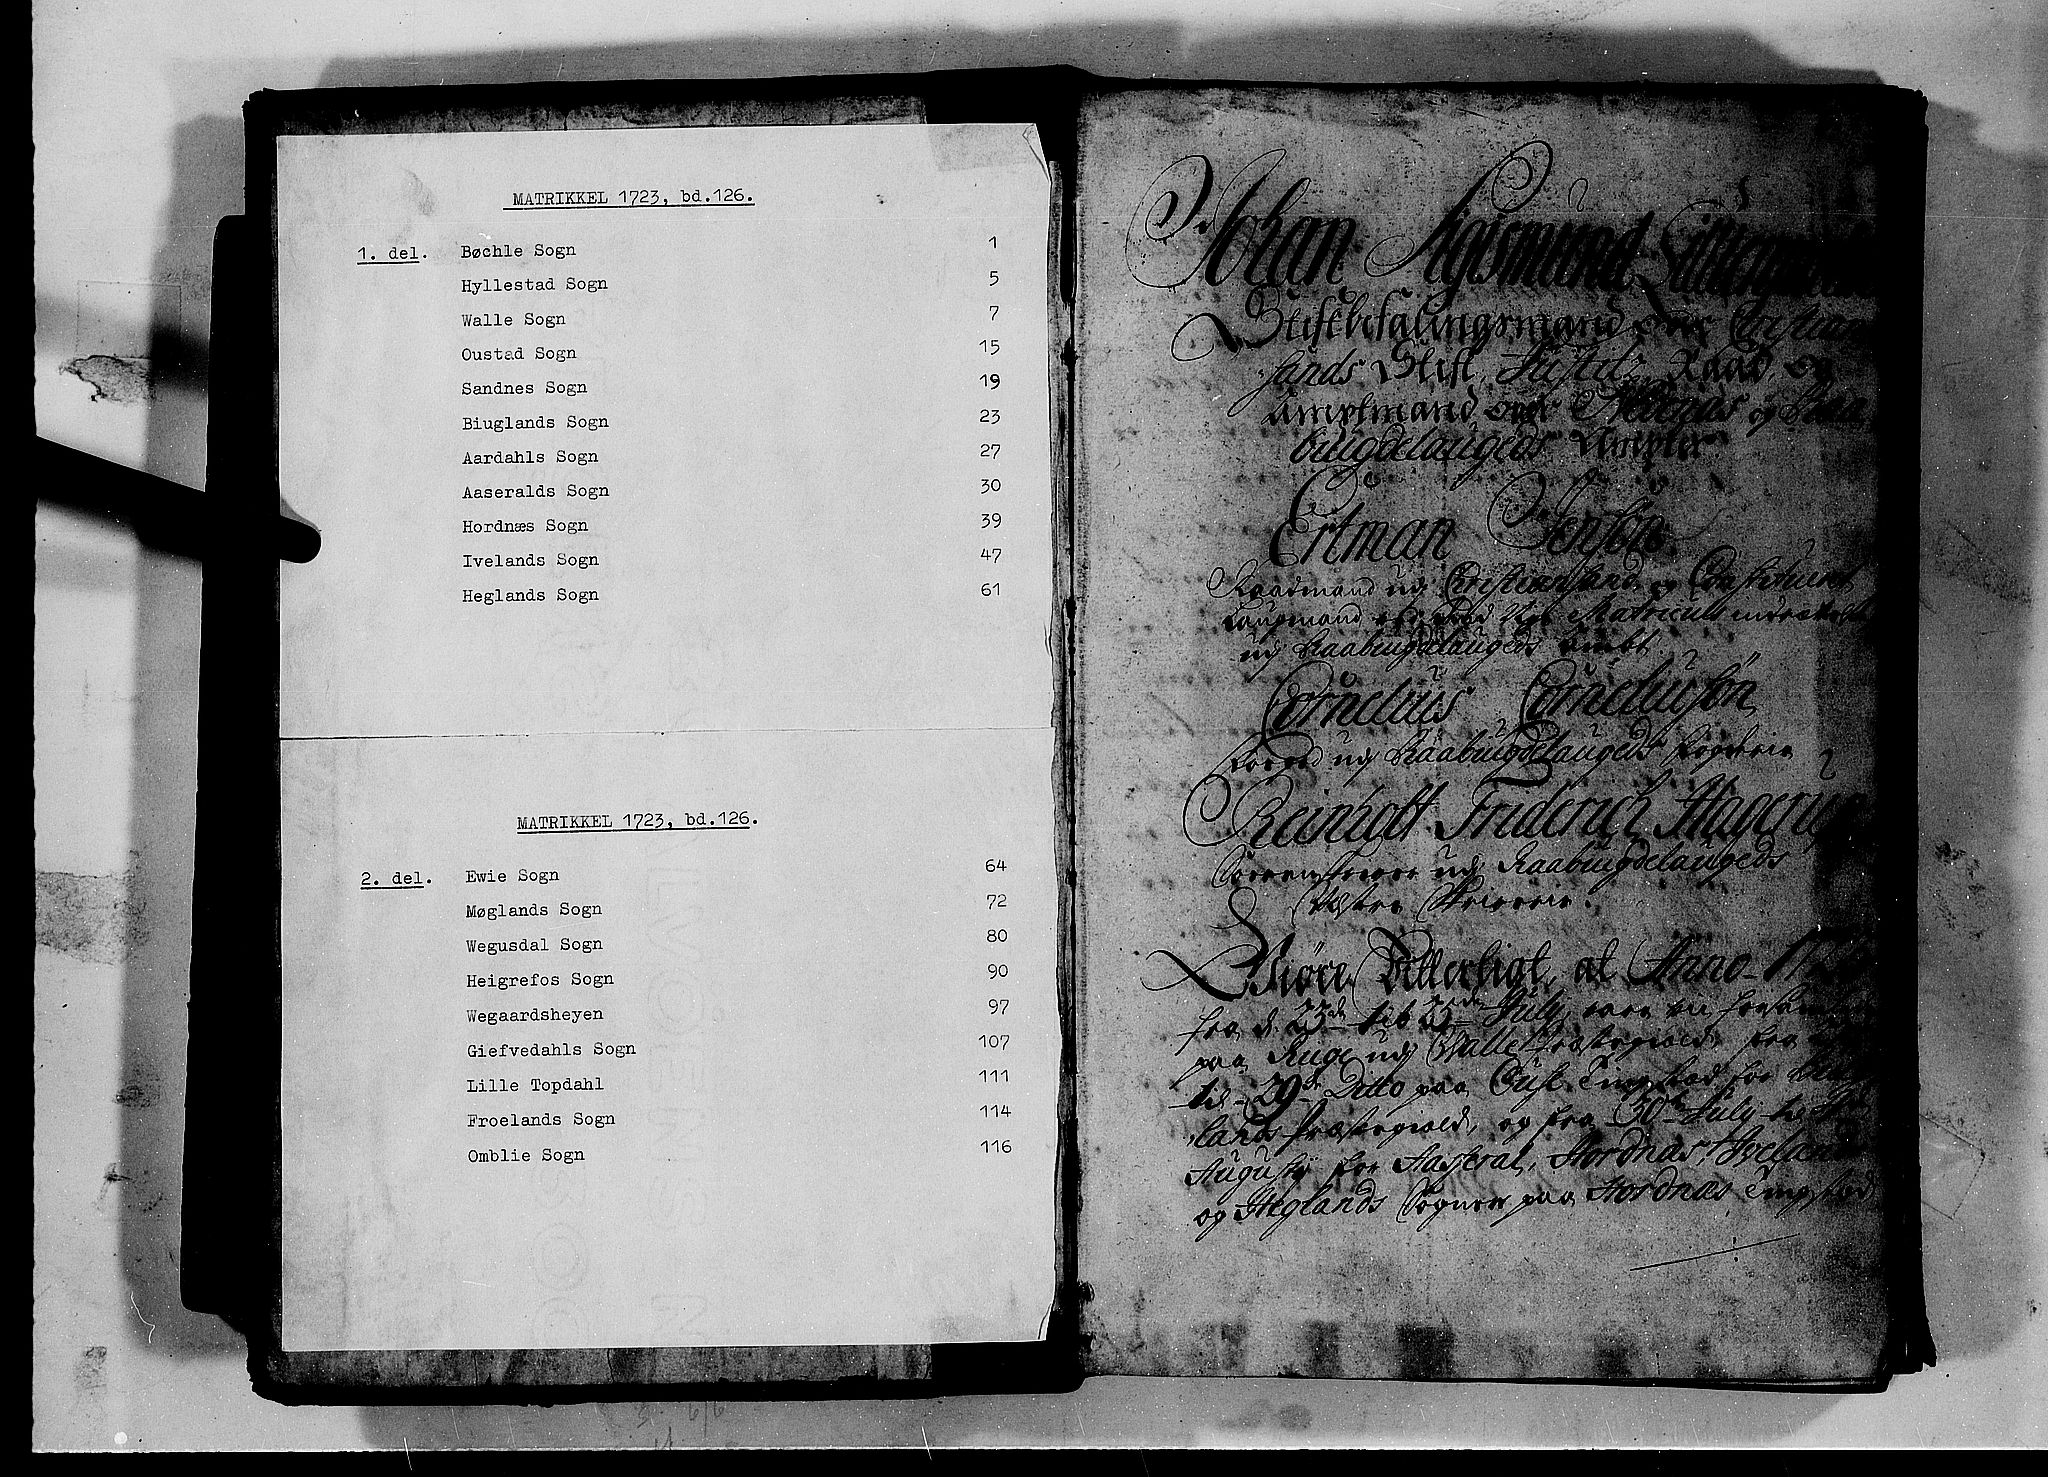 MATRIKKEL 1723, bd.126.
1. del. Bøchle Sogn 1
Hyllestad Sogn 5
Walle Sogn 7
Oustad Sogn 15
Sandnes Sogn 19
Biuglands Sogn 23
Aardahls Sogn 27
Aaseralds Sogn 30
Hordnæs Sogn 39
Ivelands Sogn 47
Heglands Sogn 61
MATRIKKEL 1723, bd.126.
2. del. Ewie Sogn 64
Møglands Sogn 72
Wegusdal Sogn 80
Heigrefos Sogn 90
Wegaardsheyen 97
Giefvedahls Sogn 107
Lille Topdahl 111
Froelands Sogn 114
Omblie Sogn 116
Johan Sigismund
Stiftbefalingsmand over Christian
sands Stift, Justits Raad, og
Amptmand over Nedenæs og Raa
bugdelaugeds Ampter
Ertman Jensøn
Raadmand udj Christiansand og Constitueret
Laugmand Matriculs
udj Raabugdelaugeds Ambt
Cornelius Corneliusøn
Foged udj Raabugdelaugeds Fogderie
Reinholt Friderich Hagerup
Sorenskriver udj Raabugdelaugeds
Skriverie.
Giøre Vitterligt, at Anno
fra d. 23de til 25de July, vare vi
paa Ruge udj Valle Præstegield, fra
til 29de Ditto paa Tingstad for
lands Præstegield, og fra 30te July til
Augusti for Aasseral, Hordnæs, Iveland
og Heglands Sogner paa Hordnæs Tingstad